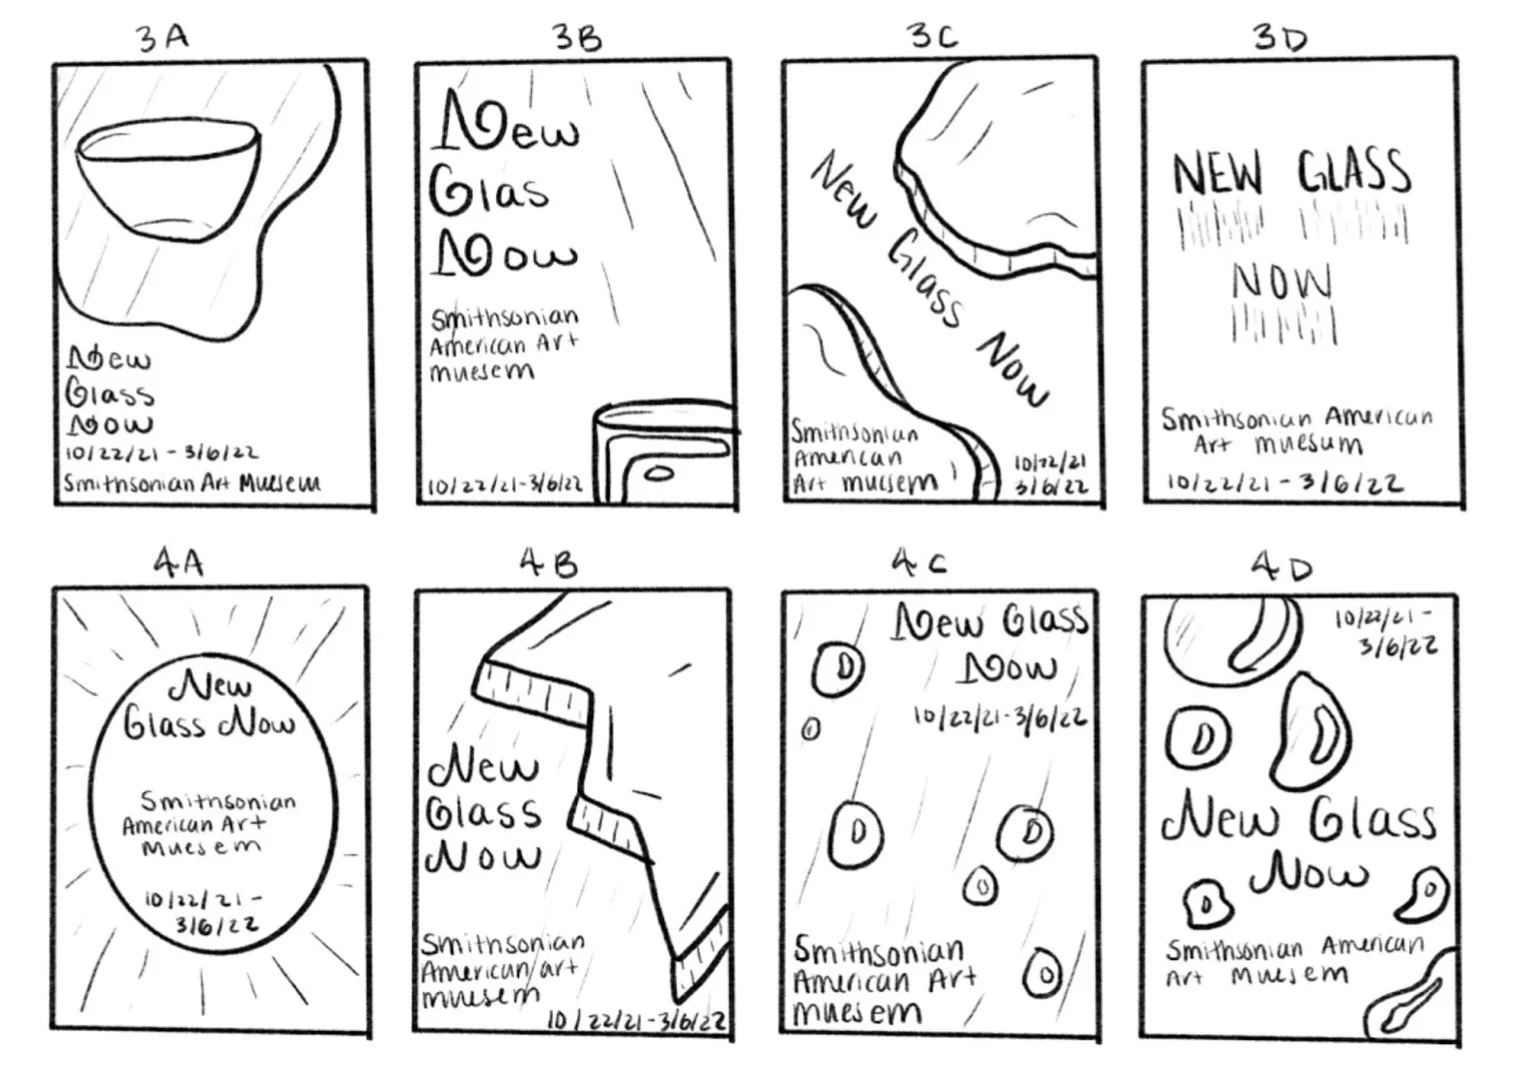 3A
New
Glass
Now
10/22/21 - 3/6/22
Smithsonian Art Muesem
3B
New
Glas
Now
Smithsonian
American Art
muesem
10/22/21-3/6/22
3C
New Glass Now
Smithsonian
American
Art muesem
10/22/21
3/6/22
3D
NEW GLASS
NOW
Smithsonian American
Art muesum
10/22/21 - 3/6/22
4A
New
Glass Now
Smithsonian
American Art
Muesem
10/22/21 -
3/6/22
4B
New
Glass
Now
Smithsonian
American art
muesem
10/22/21-3/6/22
4C
New Glass
Now
10/22/21-3/6/22
Smithsonian
American Art
muesem
4D
10/22/21 -
3/6/22
New Glass
Now
Smithsonian American
Art Muesem